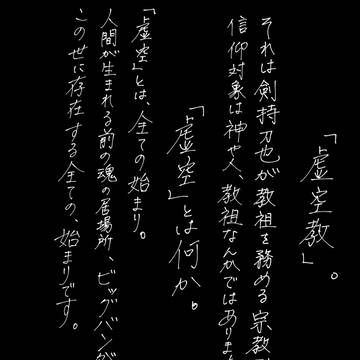 「虚空教」。
それは剣持刀也が教祖を務める宗教
信仰対象は神や人、教祖なんかではありま
「虚空」とは何か。
「虚空」とは、全ての始まり。
人間が生まれる前の魂の居場所、ビッグバンが
この世に存在する全ての、始まりです。